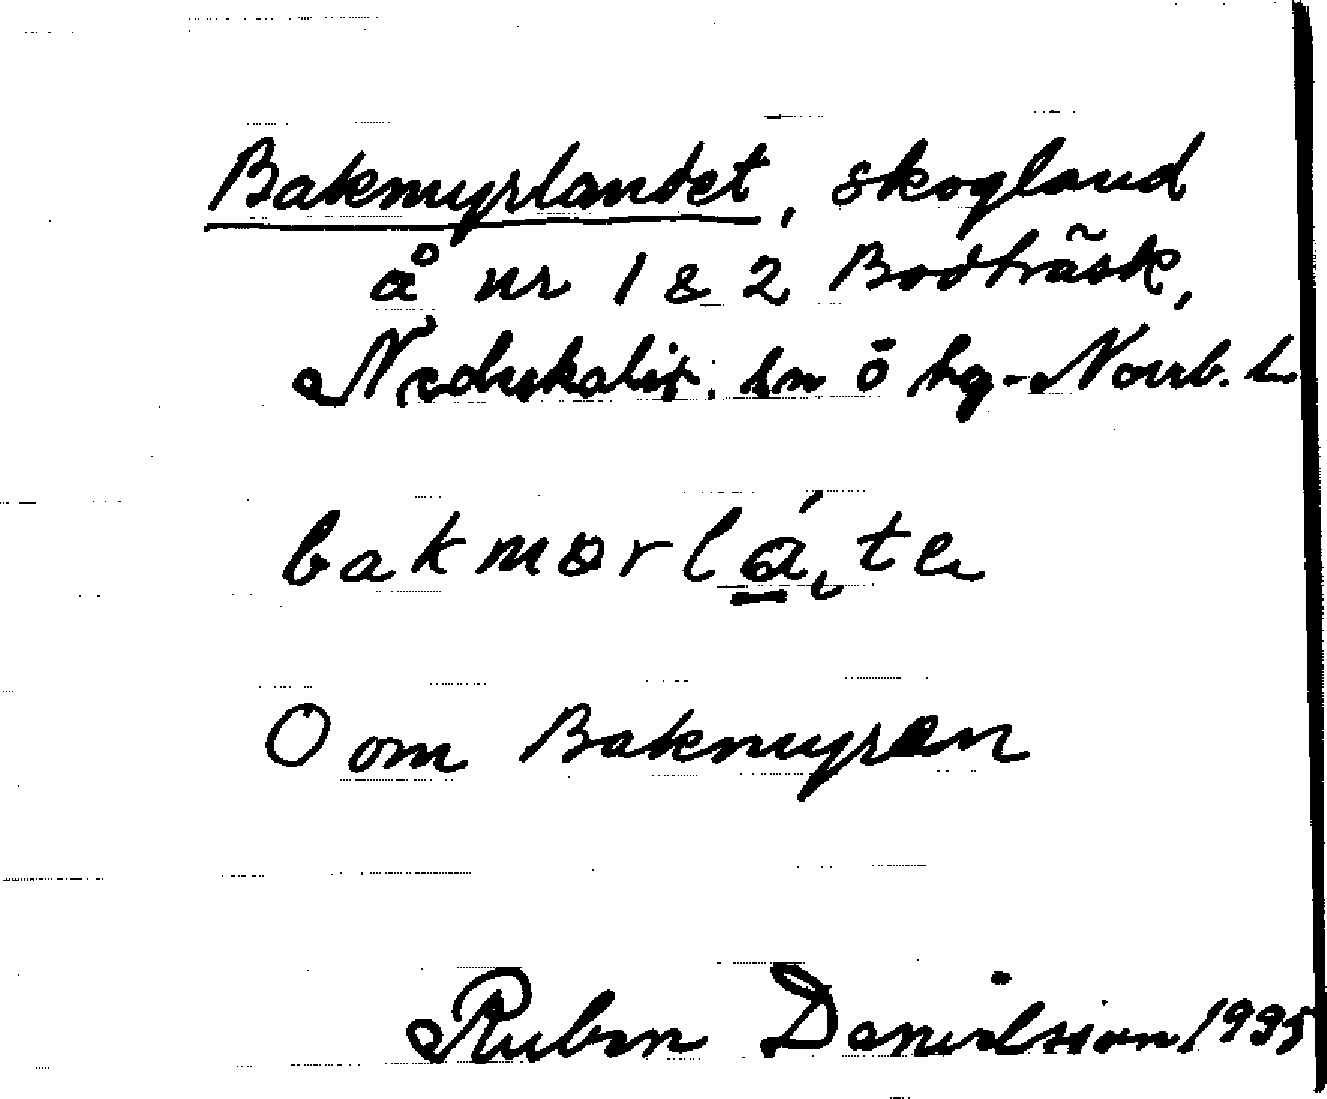 Bakmyrlandet, skogland
å nr 1 & 2 Bodträsk,
Nederkalix sn ö hg. Norrb. L.
bakmørlá̱,te
O om Bakmyren
Ruben Danielsson 1935